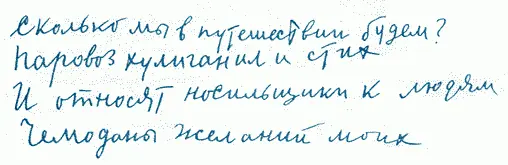 Сколько мы в путешествии будем?
Паровоз хулиганил и стих
И относят носильщики к людям
Чемоданы желаний моих